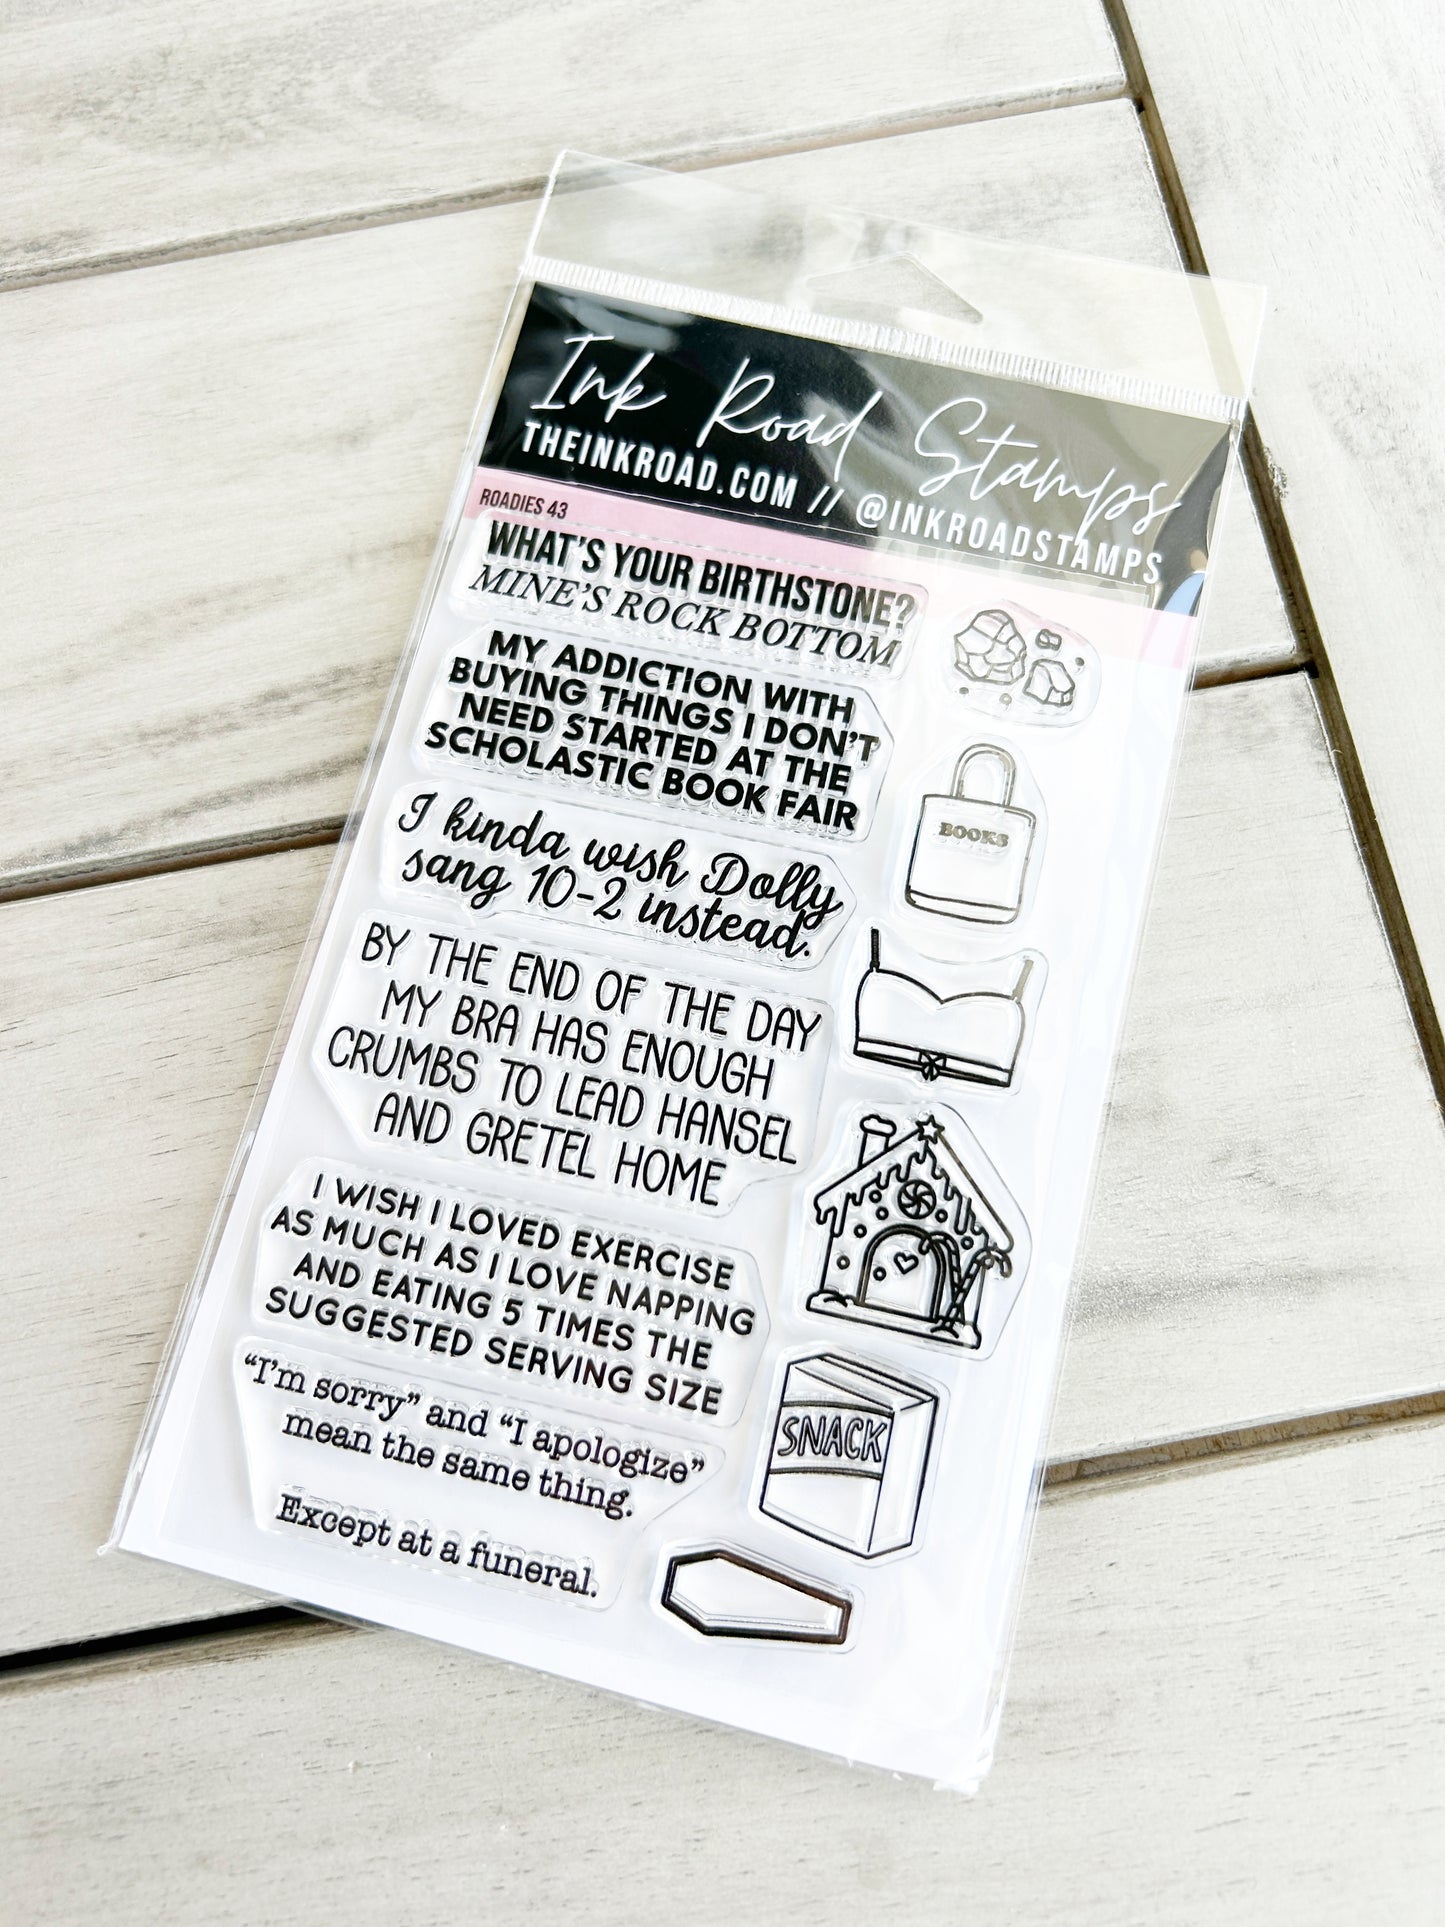 Ink Road Stamps
THEINKROAD.COM // @INKROADSTAMPS
ROADIES 43
WHAT'S YOUR BIRTHSTONE?
MINE'S ROCK BOTTOM
MY ADDICTION WITH
BUYING THINGS I DON'T
NEED STARTED AT THE
SCHOLASTIC BOOK FAIR
BOOKS
I kinda wish Dolly
sang 10-2 instead.
BY THE END OF THE DAY
MY BRA HAS ENOUGH
CRUMBS TO LEAD HANSEL
AND GRETEL HOME
I WISH I LOVED EXERCISE
AS MUCH AS I LOVE NAPPING
AND EATING 5 TIMES THE
SUGGESTED SERVING SIZE
SNACK
“I'm sorry” and “I apologize”
mean the same thing.
Except at a funeral.